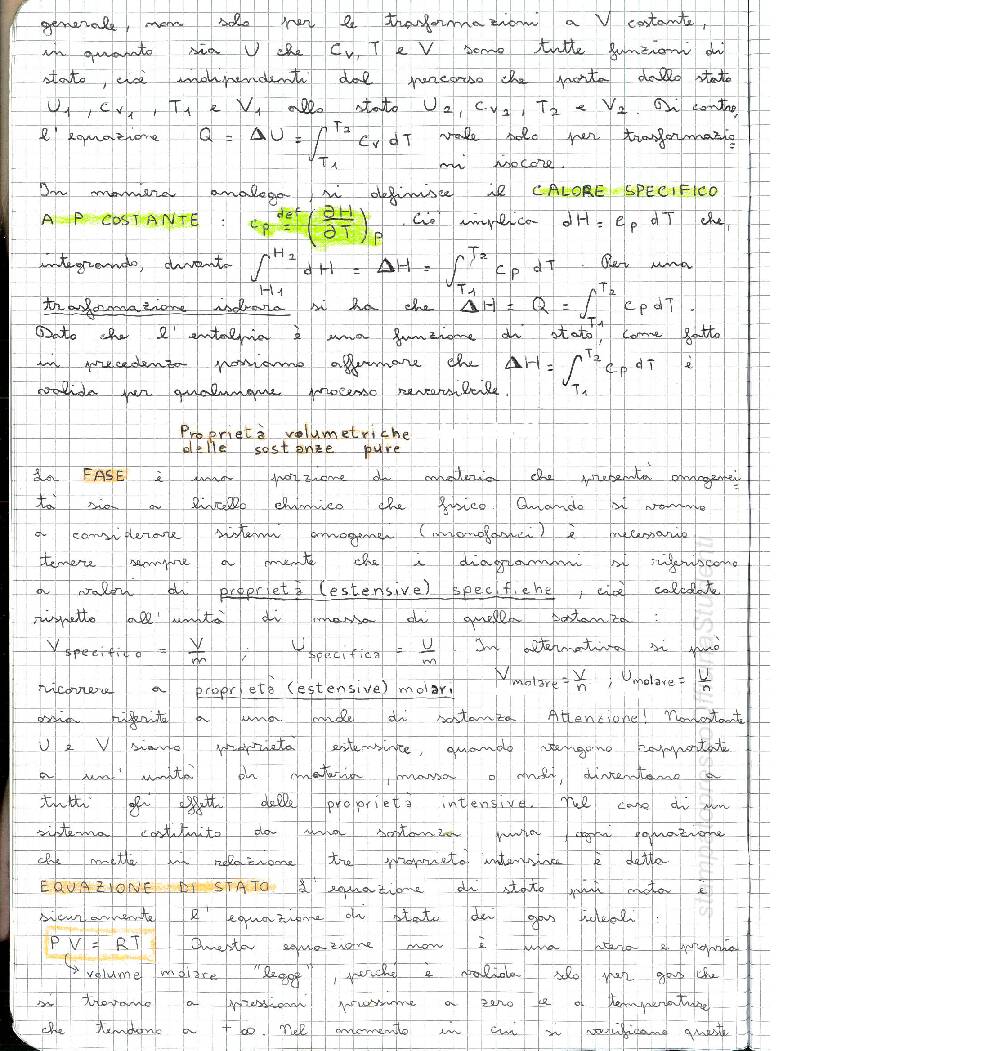 generale, non solo per le trasformazioni a V costante,
in quanto sia U che Cv, T e V sono tutte funzioni di
stato, cioè indipendenti dal percorso che porta dallo stato
U₁, Cv₁, T₁ e V₁ allo stato U₂, Cv₂, T₂ e V₂. Di contro,
l'equazione Q = ΔU = ∫_{T₁}^{T₂} Cv dT vale solo per trasformazio
ni isocore.
In maniera analoga, si definisce il CALORE SPECIFICO
A P COSTANTE : cp def= (∂H/∂T)_P. Ciò implica dH = cp dT che,
integrando, diventa ∫_{H₁}^{H₂} dH = ΔH = ∫_{T₁}^{T₂} cp dT. Per una
trasformazione isobara si ha che ΔH = Q = ∫_{T₁}^{T₂} cp dT.
Dato che l'entalpia è una funzione di stato, come fatto
in precedenza possiamo affermare che ΔH = ∫_{T₁}^{T₂} cp dT è
valida per qualunque processo reversibile.
Proprietà volumetriche
delle sostanze pure
La FASE è una porzione di materia che presenta omogenei
tà sia a livello chimico che fisico. Quando si vanno
a considerare sistemi omogenei (monofasici) è necessario
tenere sempre a mente che i diagrammi si riferiscono
a valori di proprietà (estensive) specifiche, cioè calcolate
rispetto all'unità di massa di quella sostanza :
V specifico = V/m ; U specifica = U/m. In alternativa si può
ricorrere a proprietà (estensive) molari V molare = V/n ; U molare = U/n
ossia riferite a una mole di sostanza Attenzione! Nonostante
U e V siano proprietà estensive, quando vengono rapportate
a un'unità di materia, massa o moli, diventano a
tutti gli effetti delle proprietà intensive. Nel caso di un
sistema costituito da una sostanza pura, ogni equazione
che mette in relazione tre proprietà intensive è detta
EQUAZIONE DI STATO L'equazione di stato più nota è
sicuramente l'equazione di stato dei gas ideali :
PV = RT Questa equazione non è una vera e propria
↳ volume molare "legge", perché è valida solo per gas che
si trovano a pressioni prossime a zero e a temperature
che tendono a +∞. Nel momento in cui si verificano queste